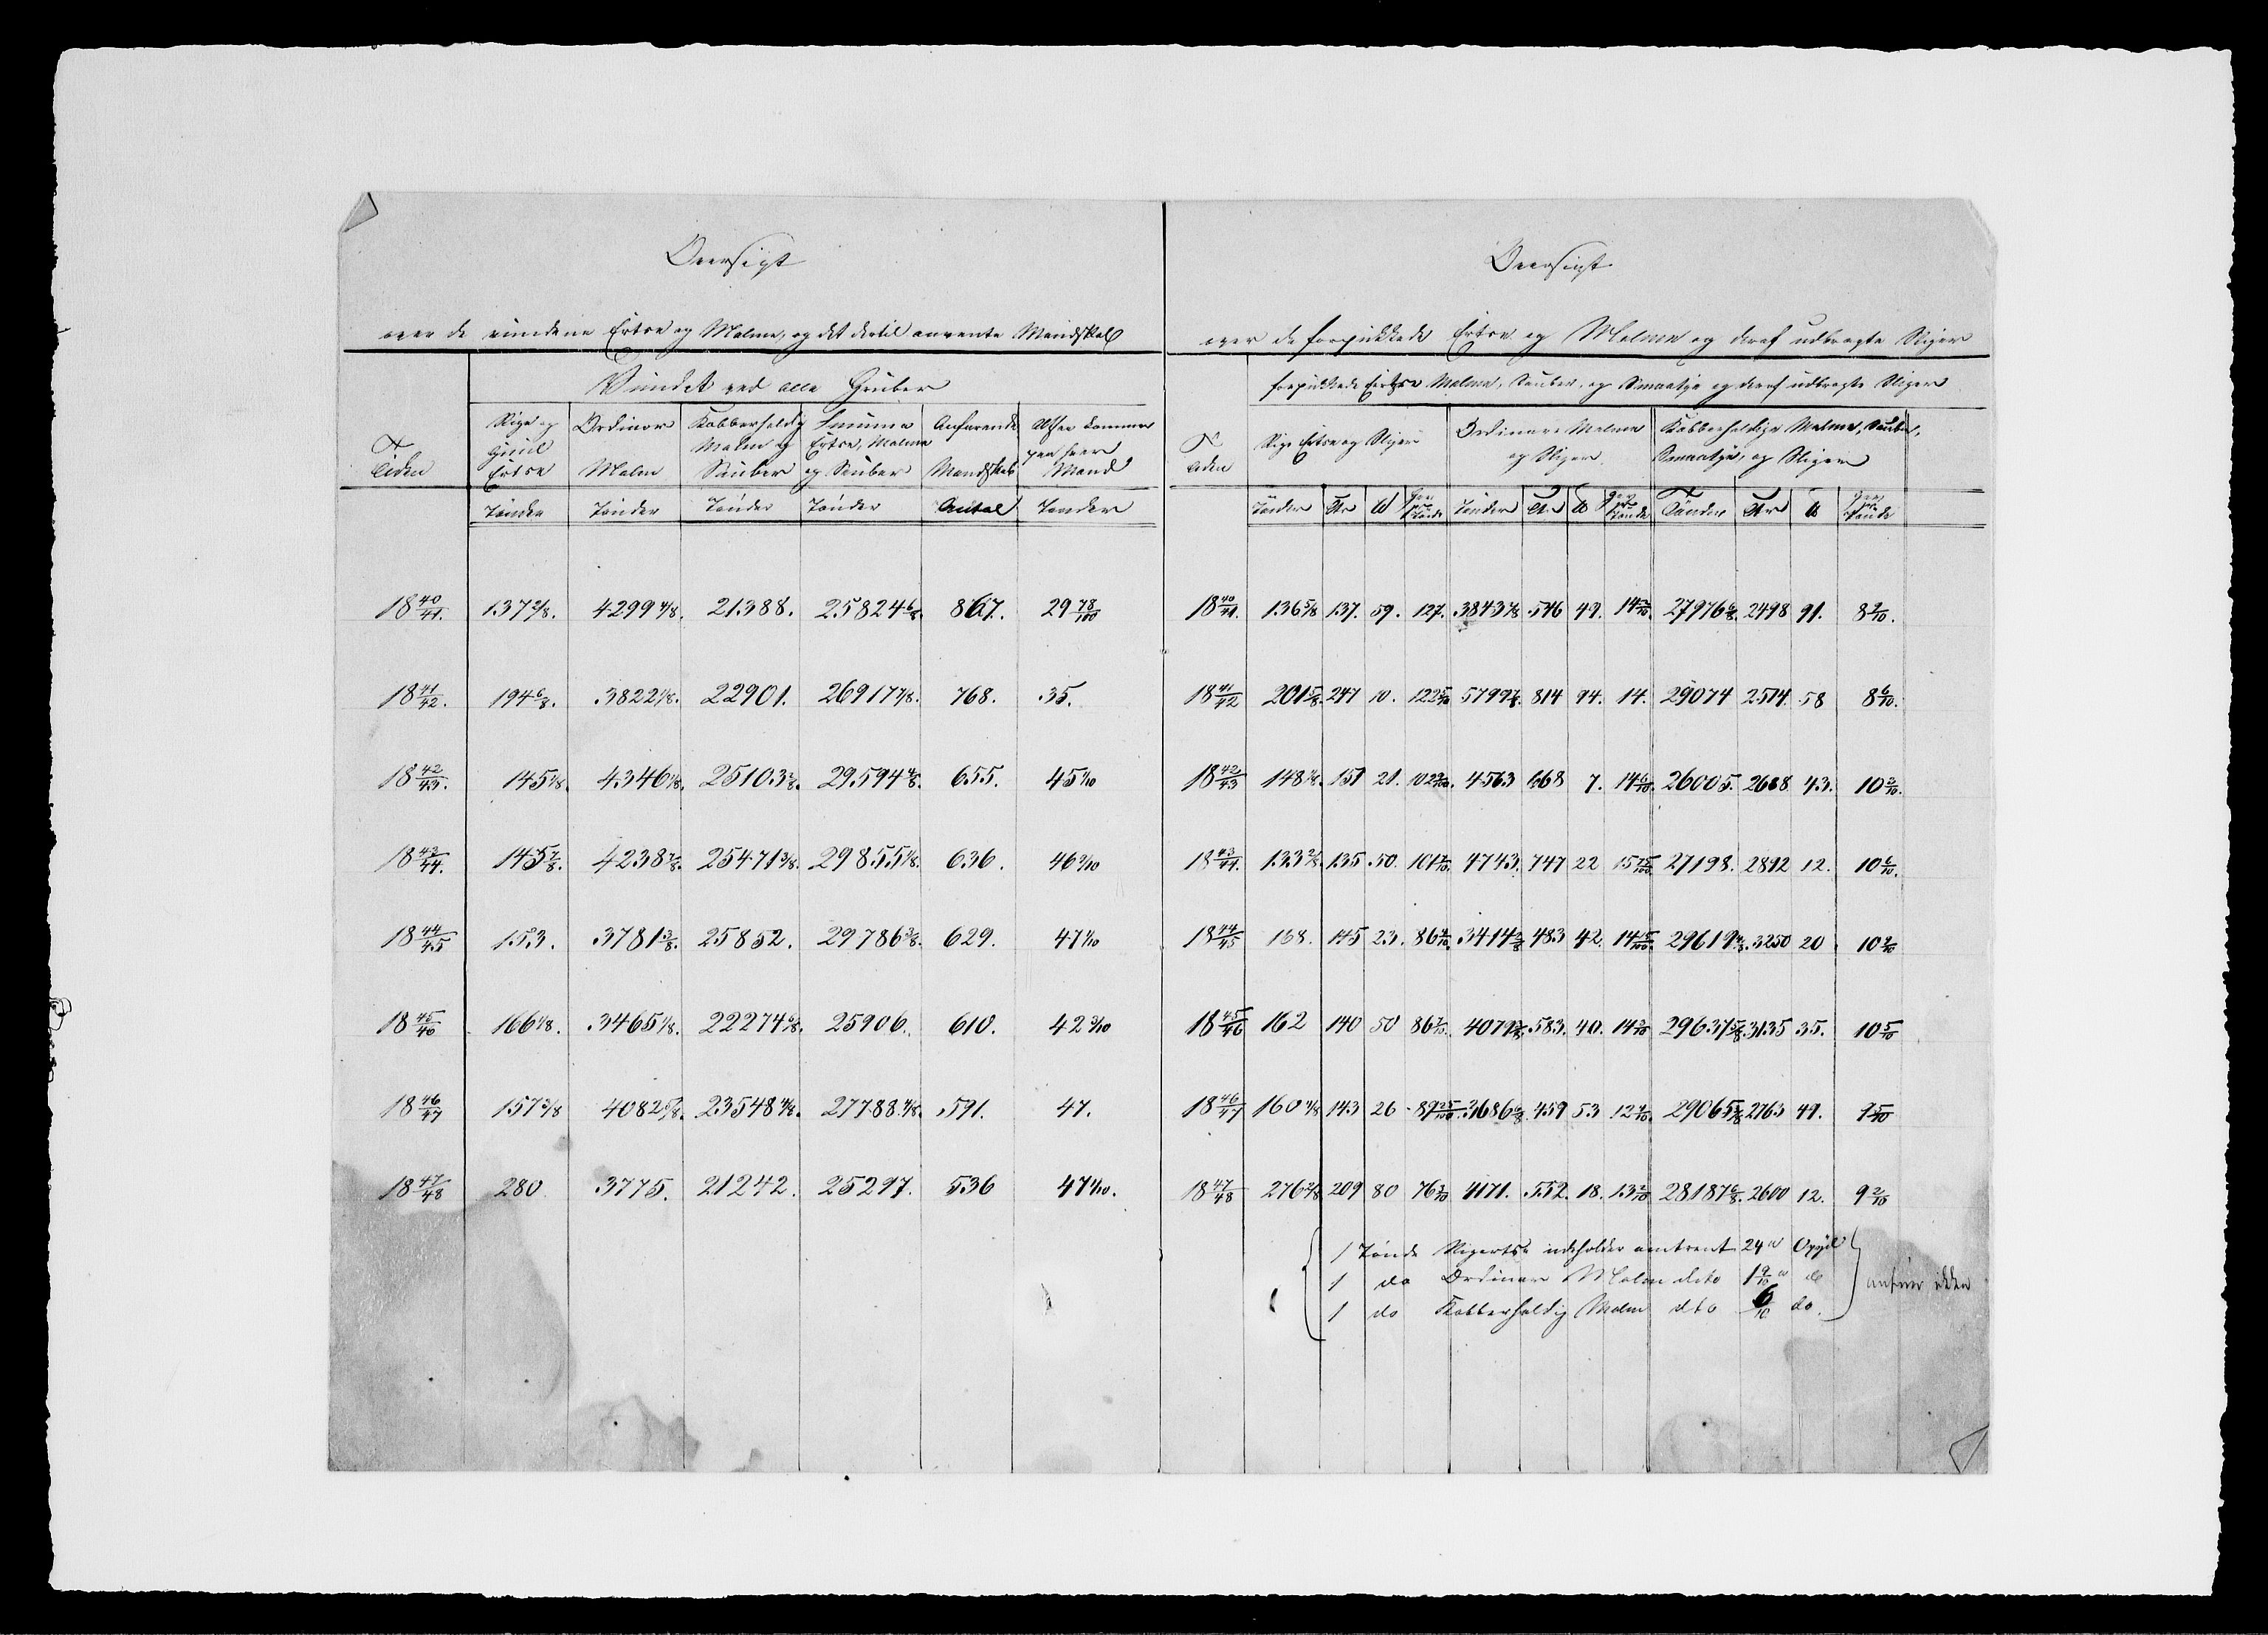 Oversigt
over de vundne Ertse og Malme, og det dertil anvente Mandskab
Vundet ved alle Gruber
Tiden | Rige og Guul Ertse | Ordinær Malm | Kobberholdig Malm og Skuber | Summa Ertse, Malme og Skuber | Anfarende Mandskab | Altsaa kommer paa hver Mand
Tønder | Tønder | Tønder | Tønder | Antal | Tønder
18 40/41. | 137 2/8. | 4299 4/8. | 21388. | 25824 6/8. | 867. | 29 78/100
18 41/42. | 194 6/8. | 3822 1/8. | 22901. | 26917 7/8. | 768. | 35.
18 42/43. | 145 1/8. | 4346 1/8. | 25103 2/8. | 29594 4/8. | 655. | 45 1/10
18 43/44. | 145 7/8. | 4238 7/8. | 25471 3/8. | 29855 1/8. | 636. | 46 9/10
18 44/45 | 153. | 3781 3/8. | 25852. | 29786 3/8. | 629. | 47 4/10
18 45/46 | 166 1/8. | 3465 1/8. | 22274 6/8. | 25906. | 610. | 42 5/10
18 46/47 | 157 3/8 | 4082 5/8. | 23548 4/8. | 27788 4/8. | 591. | 47.
18 47/48 | 280 | 3775. | 21242. | 25297. | 536 | 47 1/10.
Oversigt
over de forpukkede Ertse og Malme og deraf udbragte Sliger
forpukkede Ertse Malme, Skuber, og Smaatse og deraf udbragte Sliger
Tiden | Rige Ertse og Sliger | Ordinære Malme og Sliger | Kobberholdige Malme, Skuber, Smaatse, og Sliger
Tønder | Ctr | ℔ | Giver pr Tønde | Tønder | Ctr | ℔ | Giver pr Tønde | Tønder | Ctr | ℔ | Giver pr Tønde
18 40/41. | 136 5/8 | 137. | 59. | 127. | 3843 7/8 | 546 | 49. | 14 2/10. | 27976 6/8. | 2498 | 91. | 8 9/10.
18 41/42 | 201 5/8. | 247 | 10. | 122 5/10 | 5799 7/8. | 814 | 94. | 14. | 29074 | 2514. | 58 | 8 6/10.
18 42/43 | 148 1/8. | 151 | 21. | 102 | 4563 | 668 | 7. | 14 6/10. | 26005. | 2668 | 43. | 10 3/10.
18 43/44. | 133 2/8. | 135 | 50. | 101 7/10. | 4743. | 747 | 22 | 15 75/100. | 27198. | 2892 | 12. | 10 6/10.
18 44/45 | 168. | 145 | 23. | 86 4/10. | 3414 2/8 | 483 | 42. | 14 15/100. | 29619 4/8. | 3250 | 20 | 10 9/10
18 45/46 | 162 | 140 | 50 | 86 7/10. | 4079 | 583. | 40. | 14 3/10 | 29637 5/8. | 3135 | 35. | 10 5/10
18 46/47 | 160 4/8 | 143 | 26 | 89 25/100. | 3686 6/8 | 459 | 53 | 12 4/10. | 29065 | 2763 | 49. | 9 5/10
18 47/48 | 276 2/8 | 209 | 80 | 76 | 4171. | 552. | 18. | 13 2/10 | 28187 6/8. | 2600 | 12. | 9 2/10
1 Tønde Rigertse indeholder omtrent 24 ℔
1 do Ordinær Malm dito 1 9/10 ℔ do
1 do Kobberholdig Malm dto 6/10 do.
anføres ikke